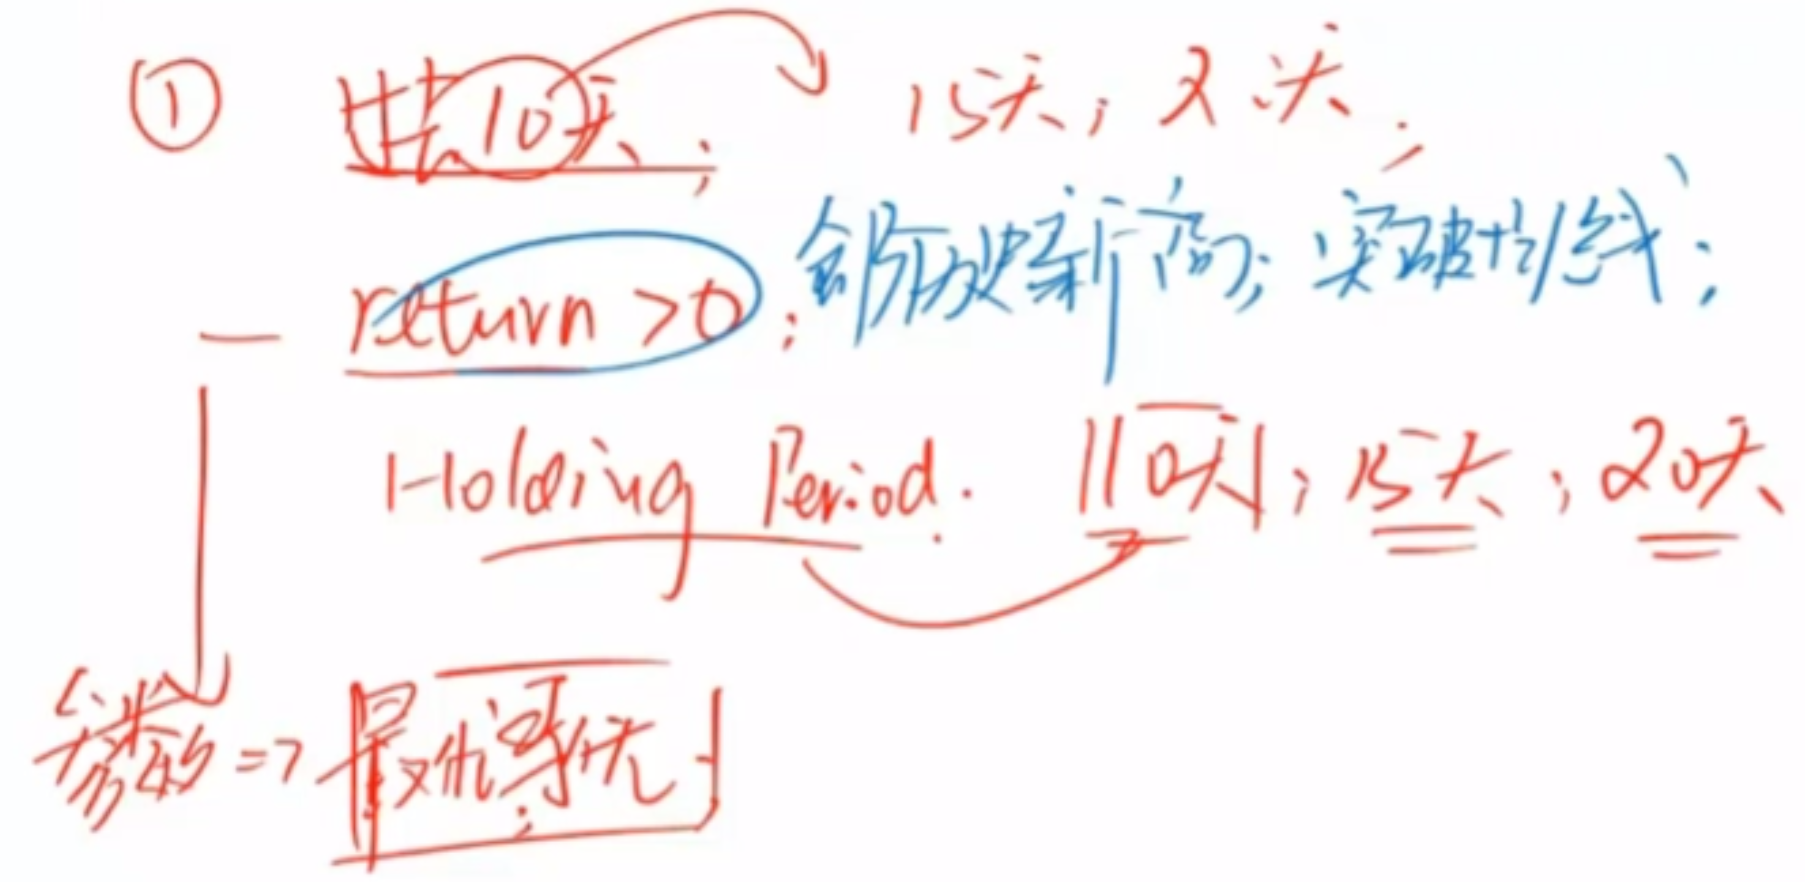 ① 过去10天; 15天; 又 天;
return >0; 创历史新高; 突破均线;
Holding Period. 10天; 15天; 20天
参数 => 最优寻优